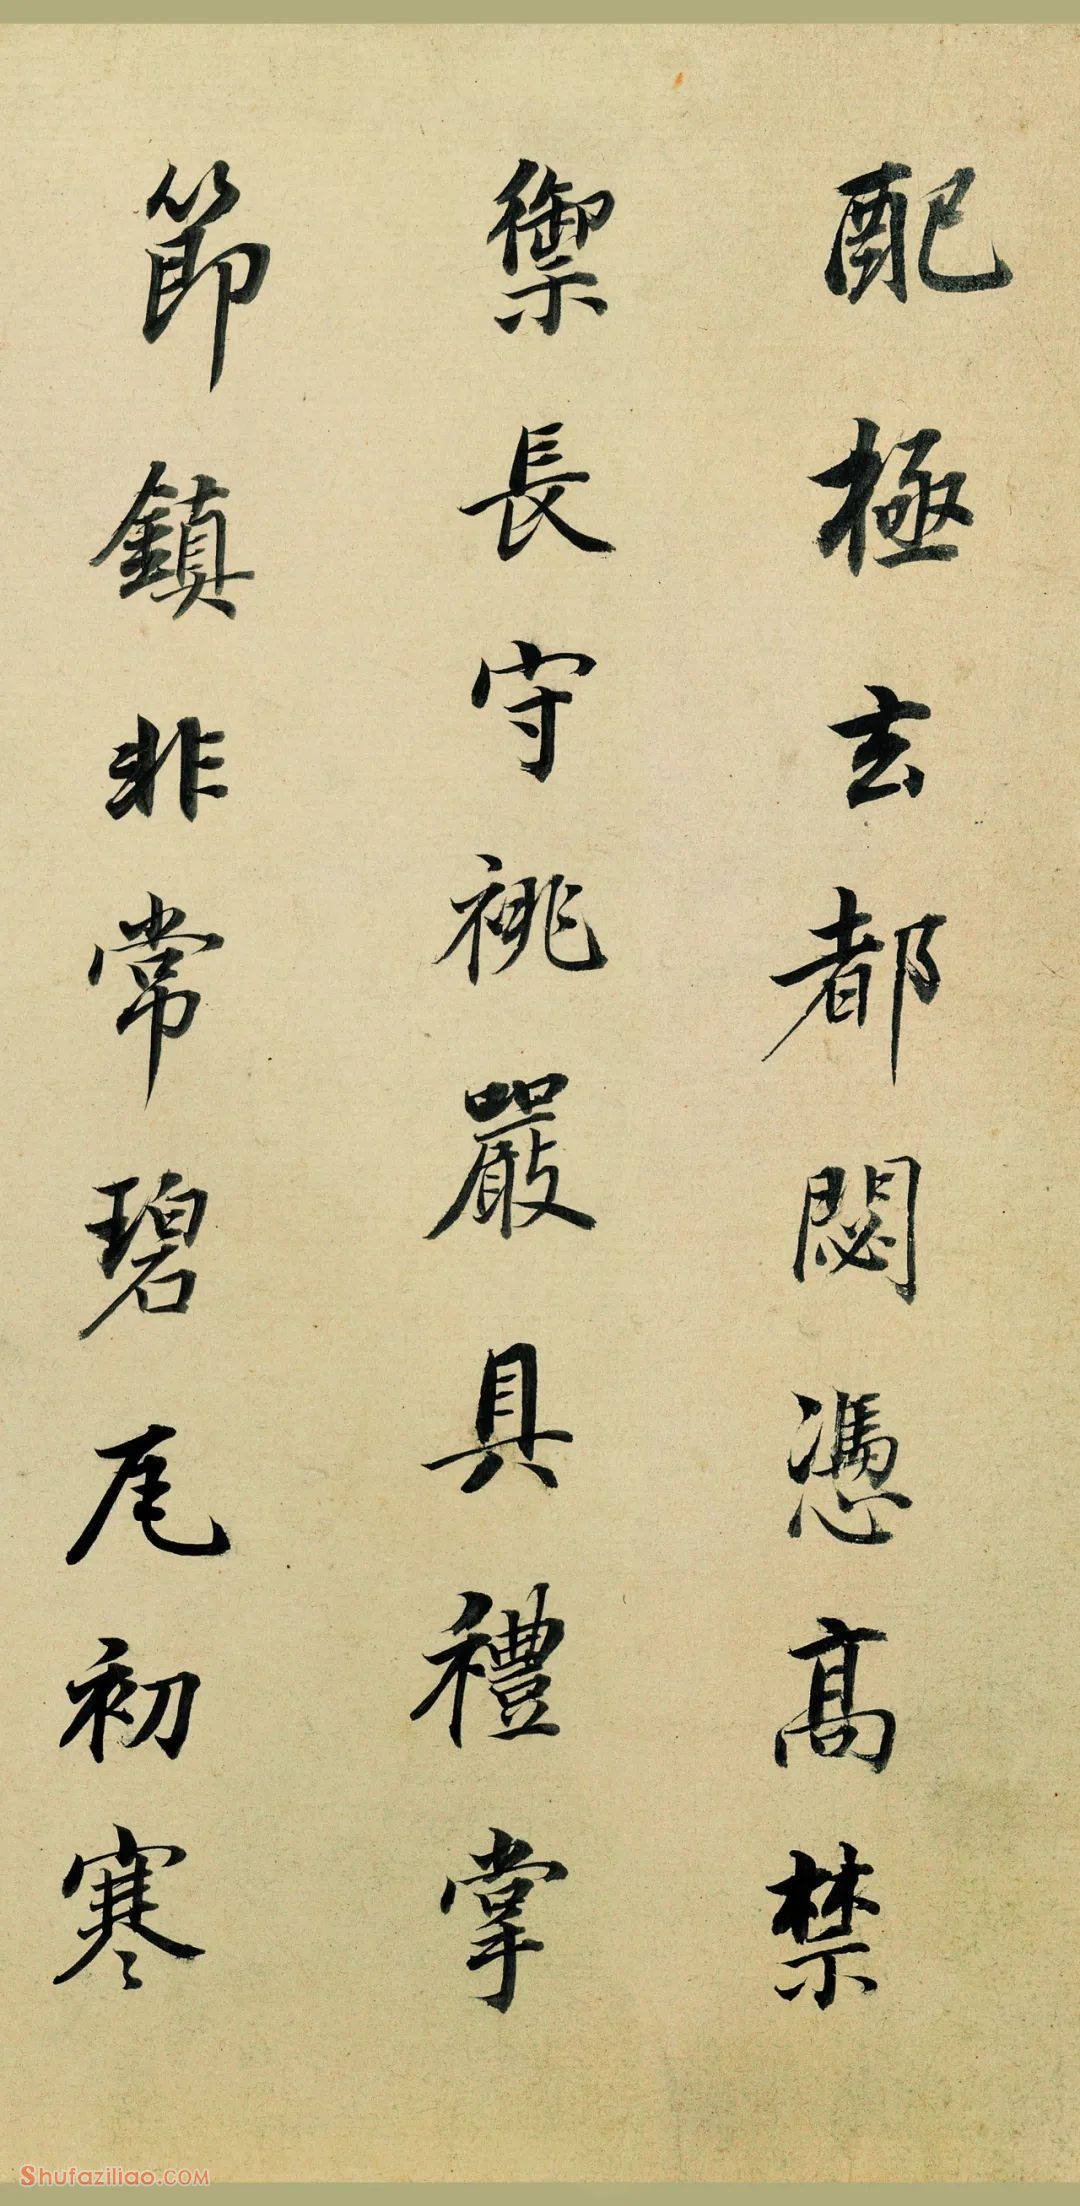 配極玄都閟憑高禁
禦長守祧嚴具禮掌
節鎮非常碧尾初寒
Shufaziliao.COM